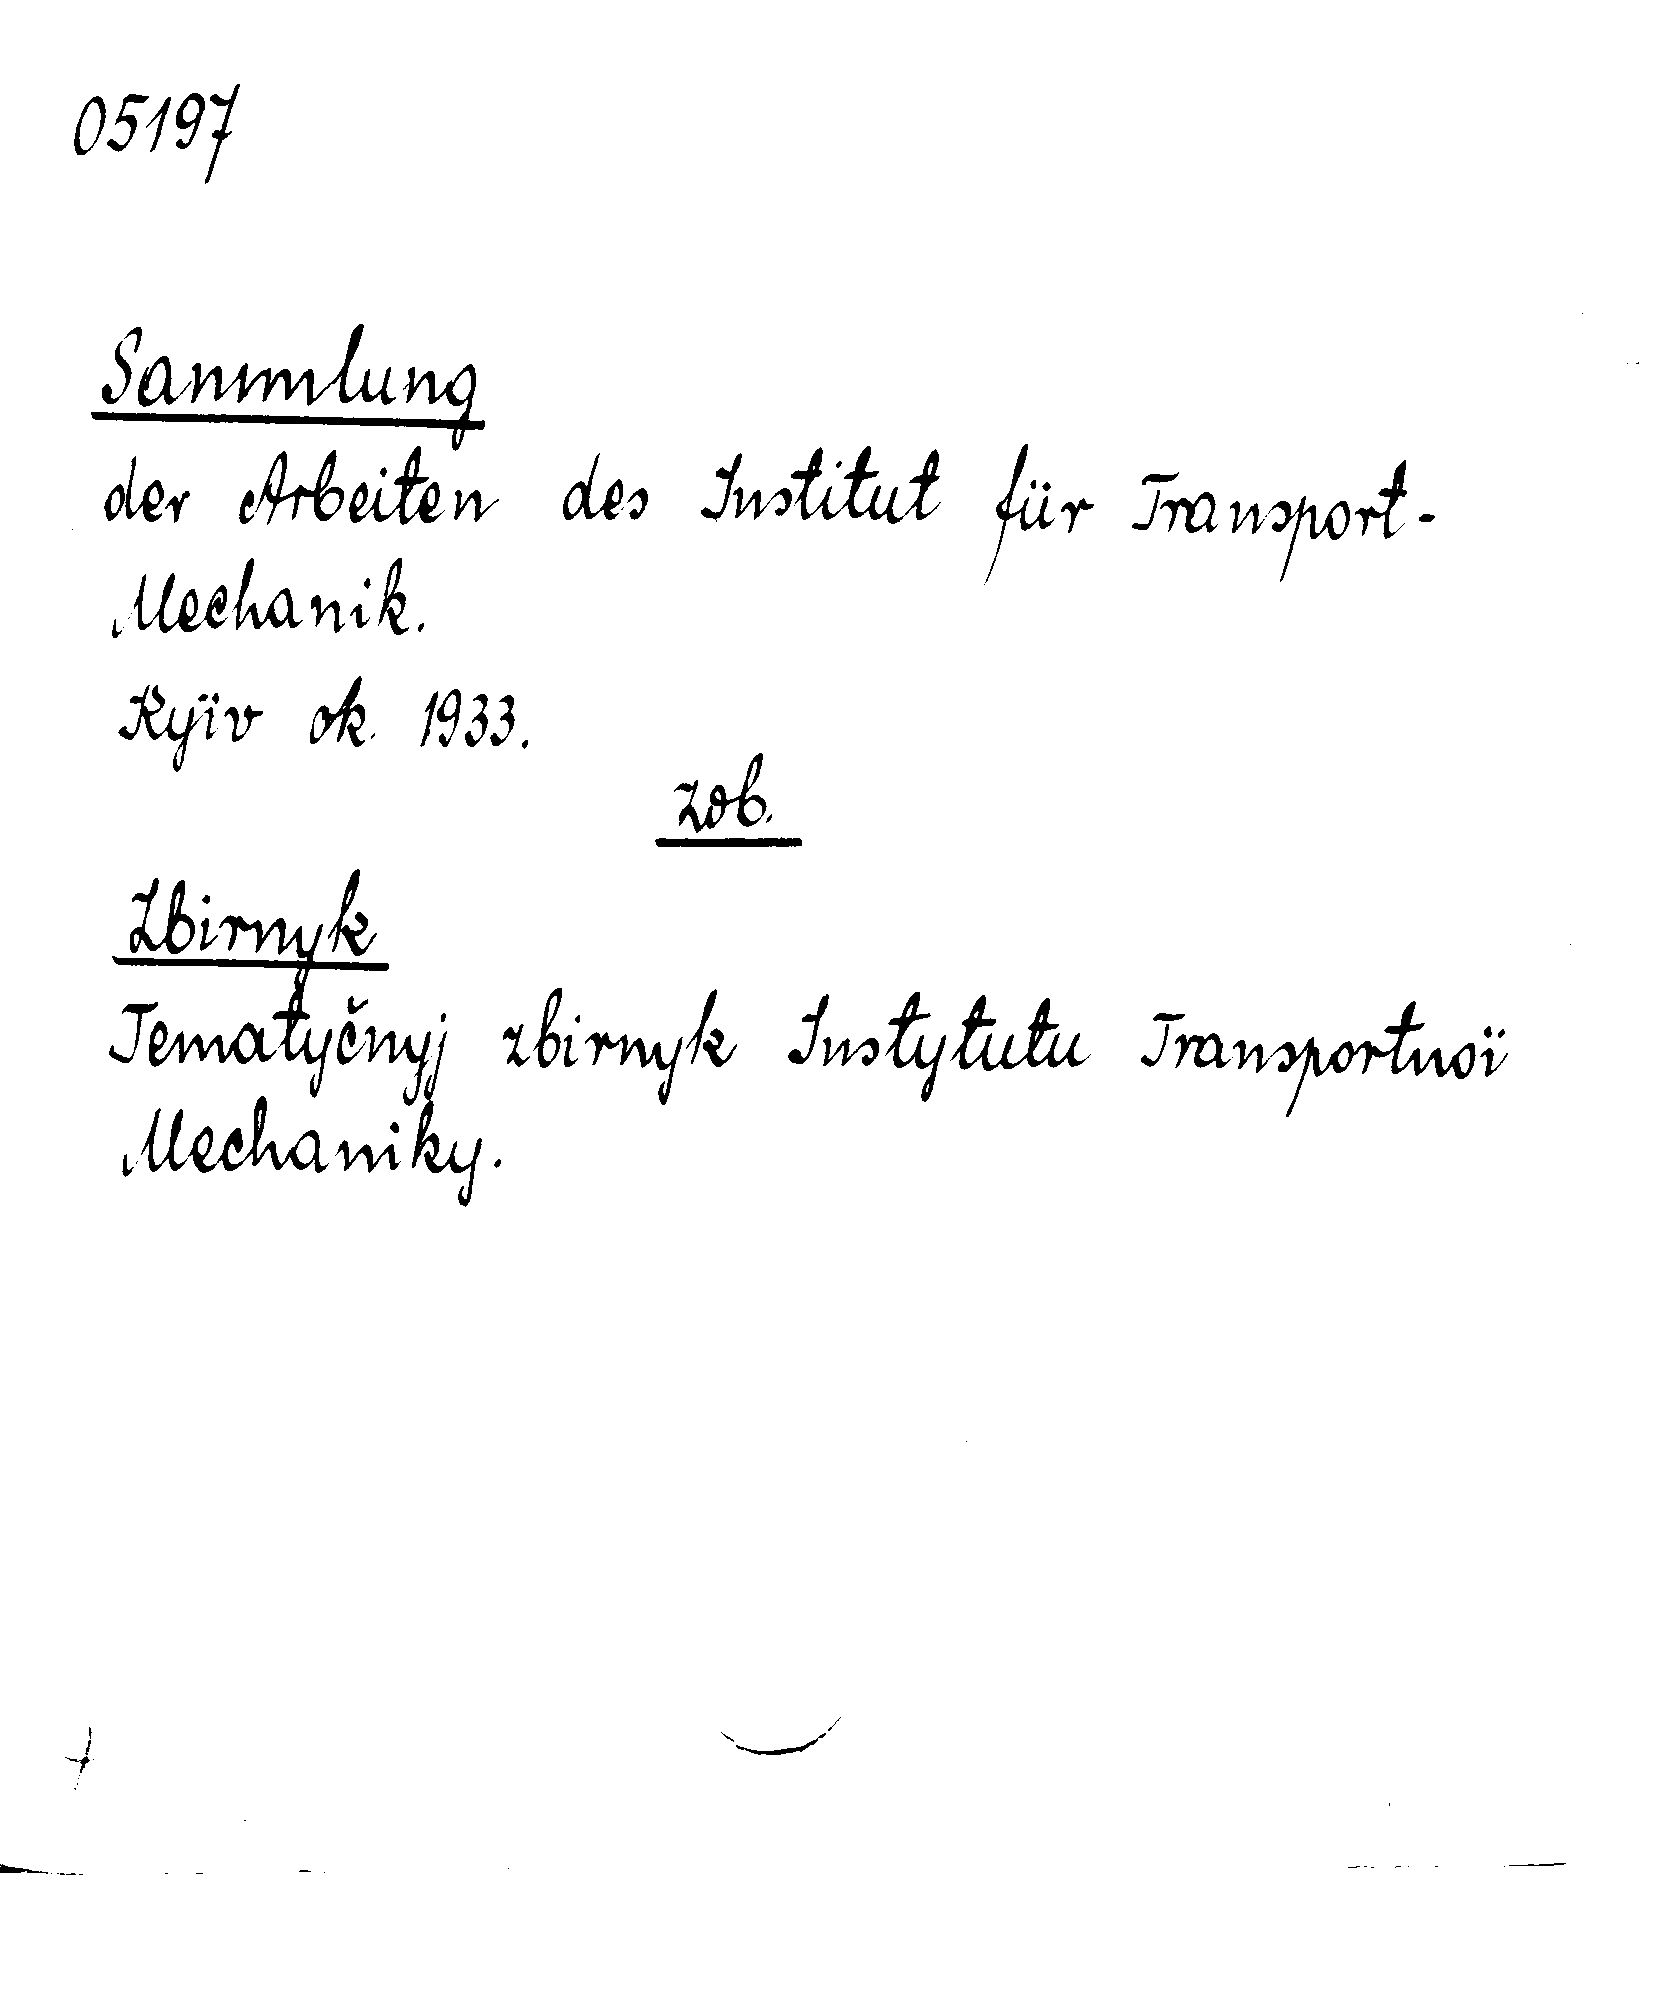 05197
Sammlung
der Arbeiten des Institut für Transport-
Mechanik.
Kyïv ok. 1933.
zob.
Zbirnyk
Tematyčnyj zbirnyk Instytutu Transportnoï
Mechaniky.